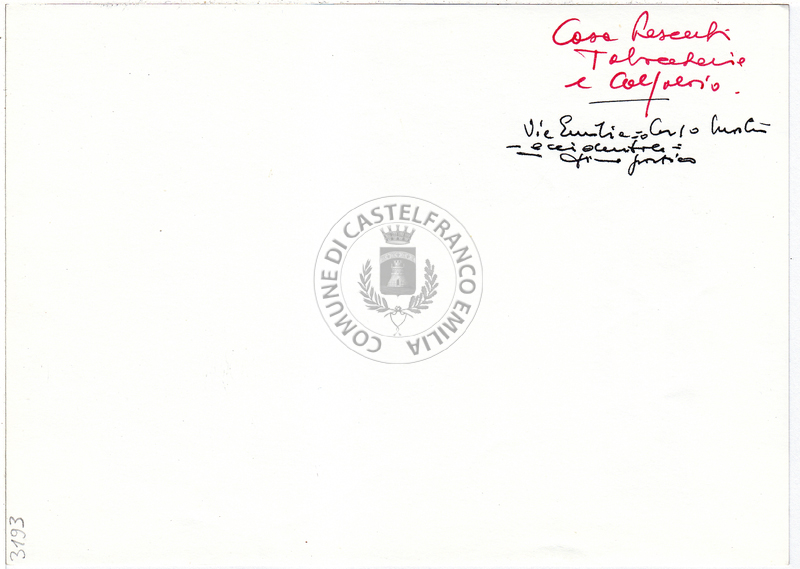 Casa
Tabaccheria
e Calzolaio.
Via Emilia = Corso Martiri
= occidentale =
portico
COMUNE DI CASTELFRANCO EMILIA
3193